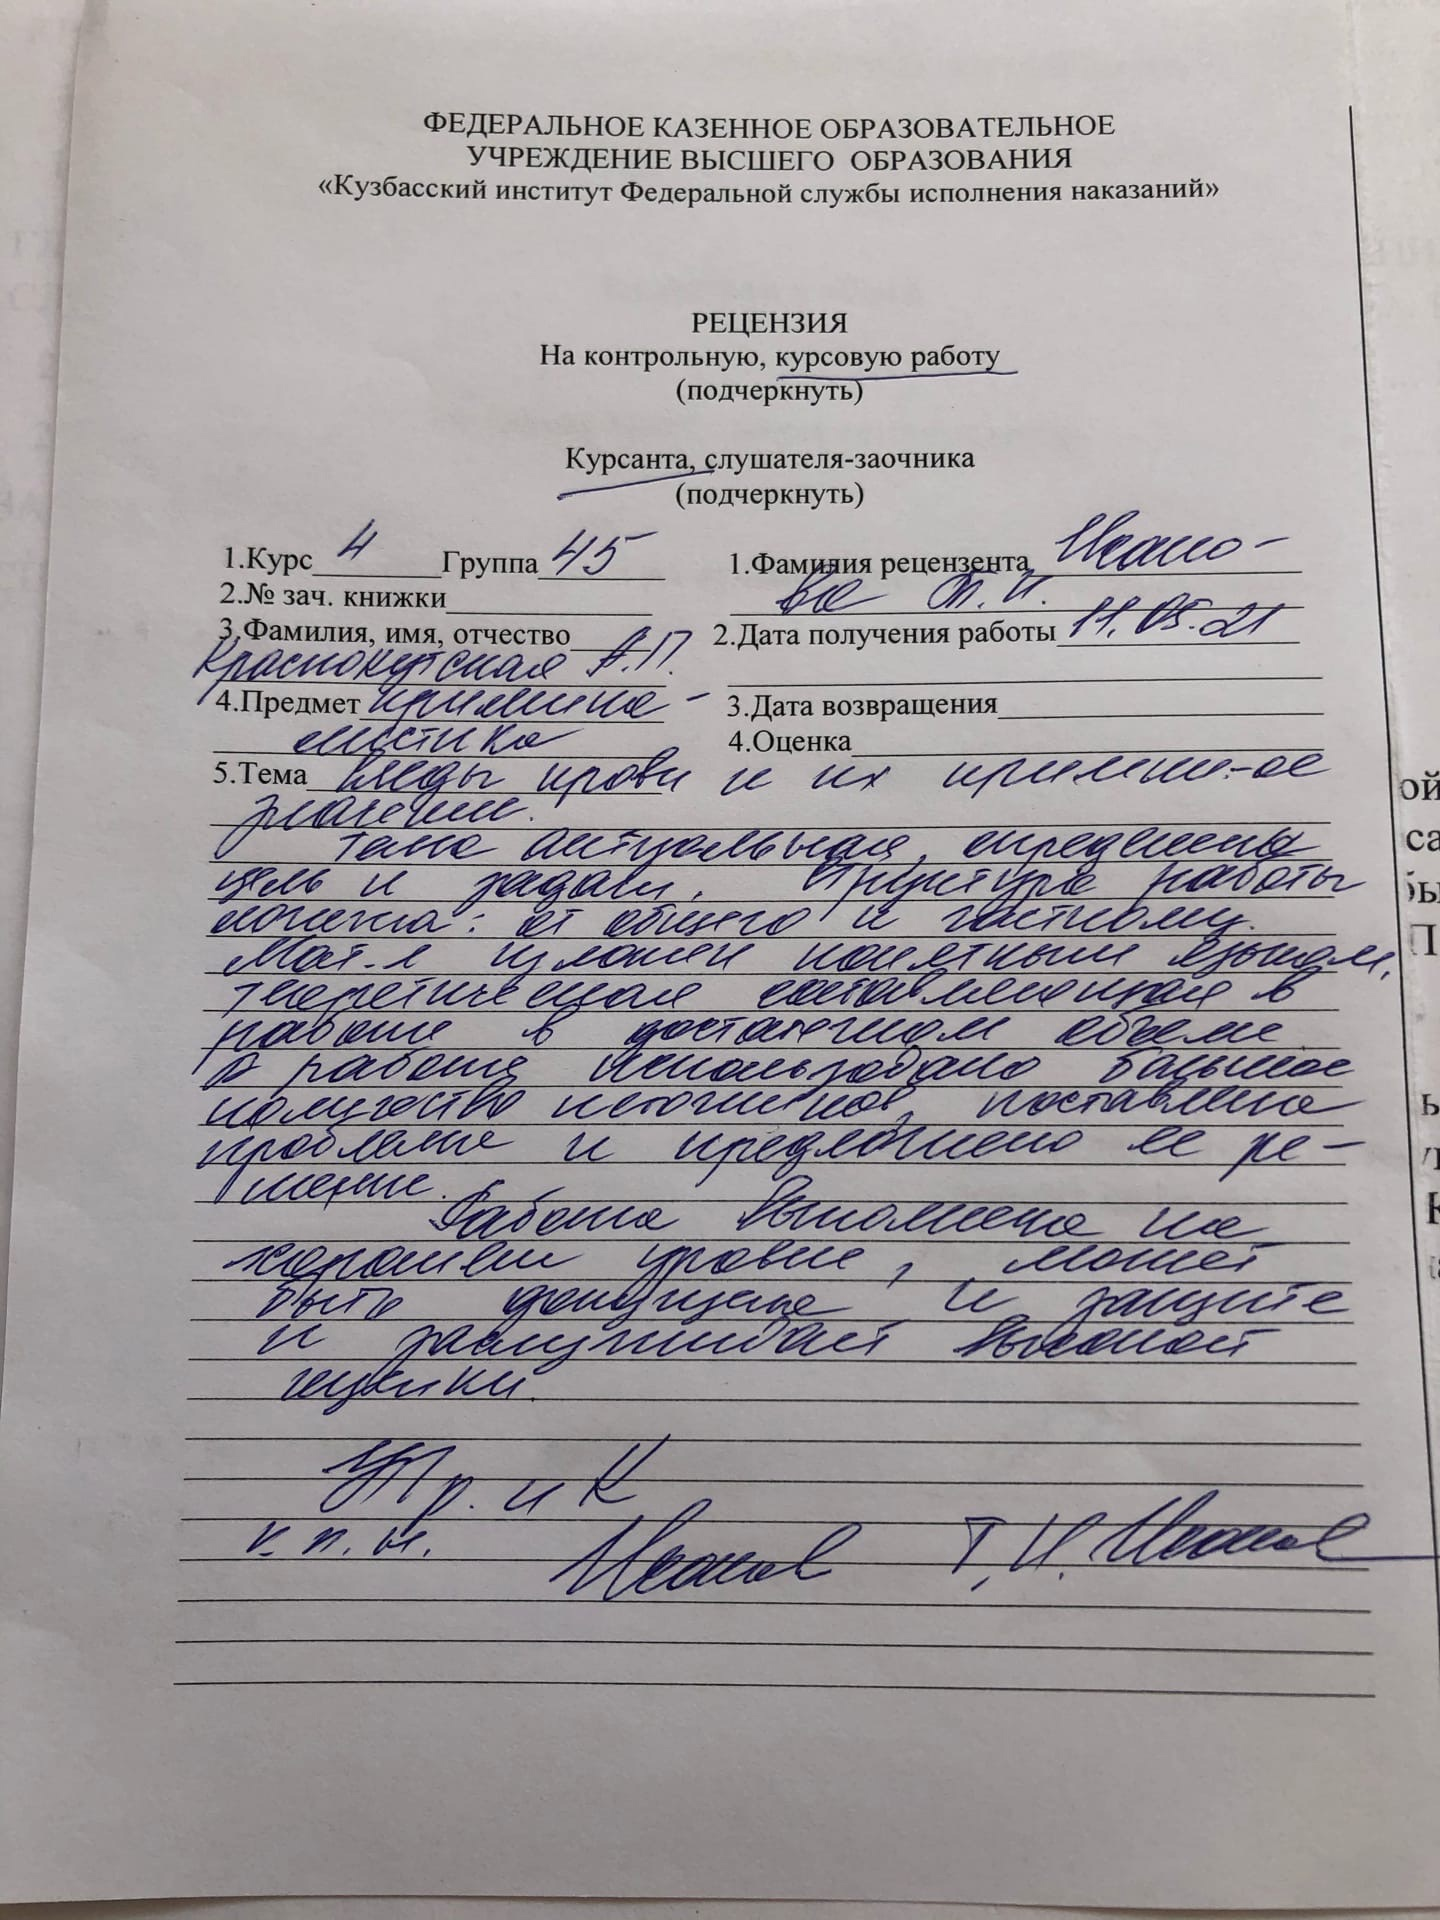 ФЕДЕРАЛЬНОЕ КАЗЕННОЕ ОБРАЗОВАТЕЛЬНОЕ
УЧРЕЖДЕНИЕ ВЫСШЕГО ОБРАЗОВАНИЯ
«Кузбасский институт Федеральной службы исполнения наказаний»
РЕЦЕНЗИЯ
На контрольную, курсовую работу
(подчеркнуть)
Курсанта, слушателя-заочника
(подчеркнуть)
1.Курс 4 Группа 45
2.№ зач. книжки
3.Фамилия, имя, отчество
Краснокутская А.П.
4.Предмет кримина-
листика
1.Фамилия рецензента Ивано-
ва Т.И.
2.Дата получения работы 11.05.21
3.Дата возвращения
4.Оценка
5.Тема Следы крови и их кримин-ое
значение.
Тема актуальная, определены
цель и задачи. Структура работы
логична: от общего к частному.
Мат-л изложен понятным языком,
теоретическая составляющая в
работе в достаточном объеме.
В работе использовано большое
количество источников, поставлена
проблема и предложено ее ре-
шение.
Работа выполнена на
хорошем уровне, может
быть допущена к защите
и заслуживает высокой
оценки.
УПр. и К
к.п.н. Т.И. Иванова